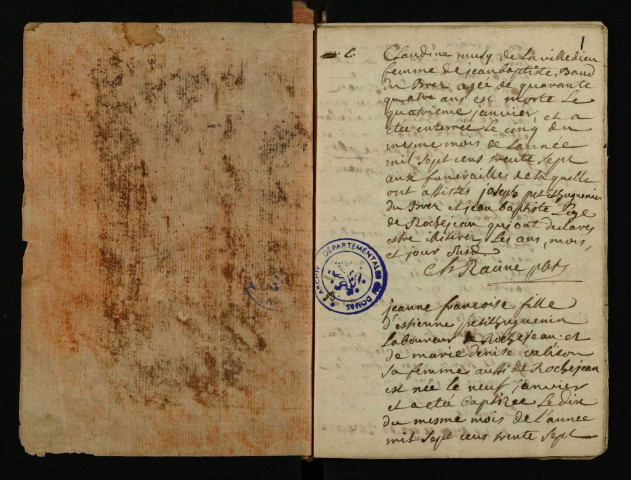 1
Claudine musy de Lavilledieu
femme de jean baptiste Baud
du Brey agée de quarante
quatre ans est morte Le
quatrieme janvier et a
etée interrée Le cinq du
mesme mois de L'année
mil sept cens trente sept
aux funerailles de laquelle
ont assistes joseph petithuguenin
du Brey et jean baptiste
de Rochejean qui ont declares
estre illiterez Les ans, mois,
et jour susd
jeanne francoise fille
d'estienne petithuguenin
Laboureur de Rochejean et
de marie denise
sa femme aussi de Rochejean
est née le neuf janvier
et a eté baptizée Le dix
du mesme mois de L'année
mil sept cens trente sept
DEPARTEMENTALES DU DOUBS